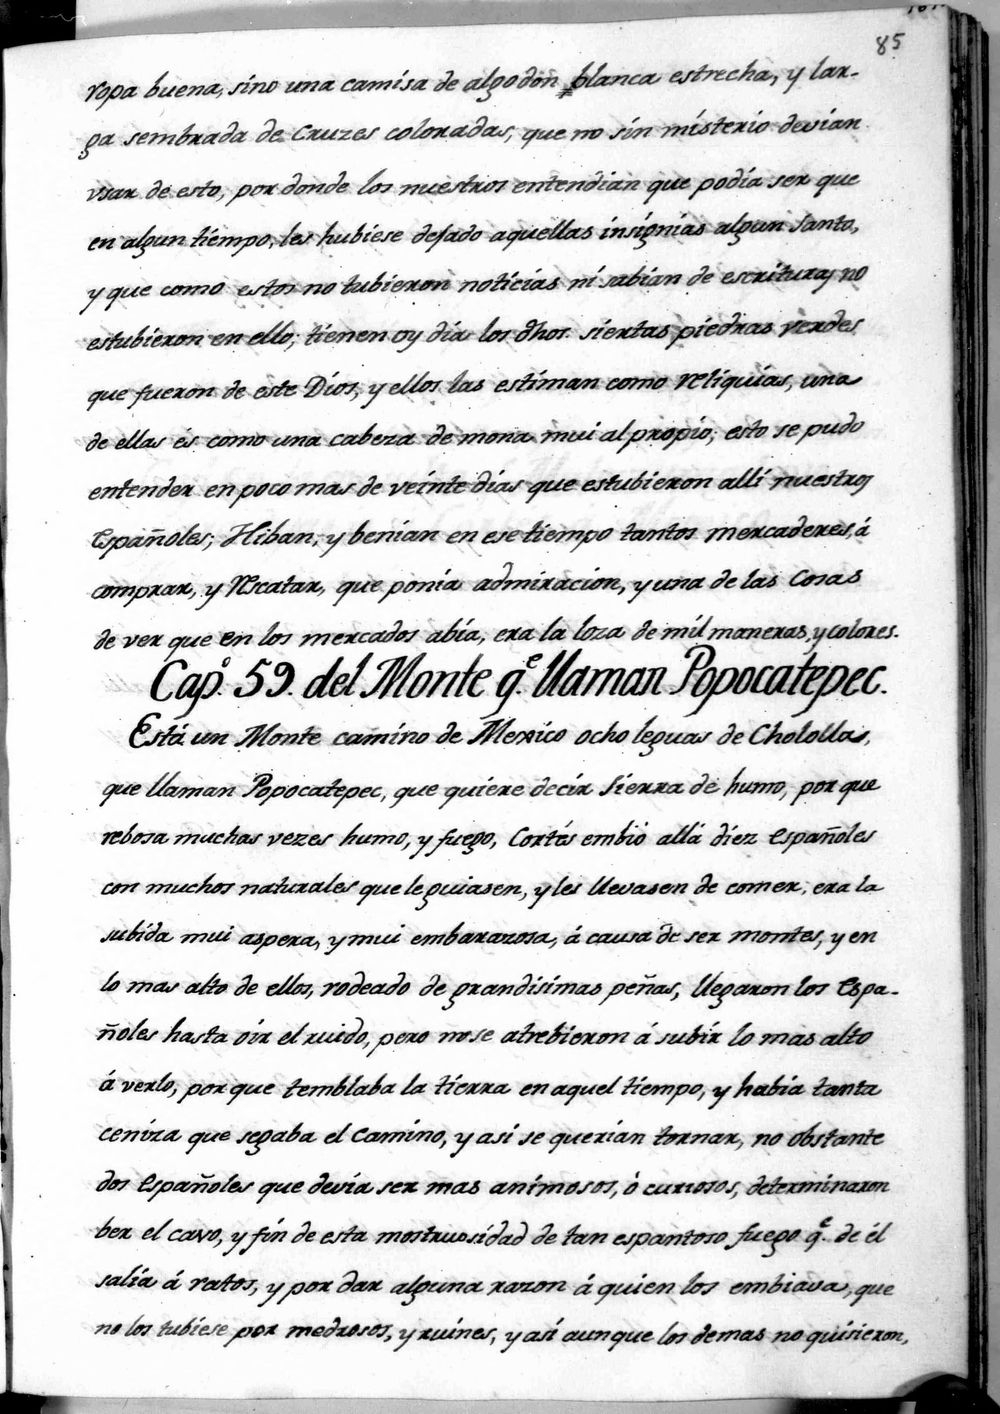 85
ropa buena, sino una camisa de algodon blanca estrecha, y lar-
ga sembrada de Cruzes coloradas, que no sin misterio devian
vsar de esto, por donde los nuestros entendian que podia ser que
en algun tiempo, les hubiese dejado aquellas insignias algun Santo,
y que como estos no tubieron noticias ni sabian de escrituras no
estubieron en ello; tienen oy dia los dhos. siertas piedras verdes
que fueron de este Dios, y ellos las estiman como reliquias, una
de ellas és como una cabeza de mona mui al propio; esto se pudo
entender en poco mas de veinte dias que estubieron alli nuestros
Españoles; Hiban, y benian en ese tiempo tantos mercaderes, á
comprar, y rescatar, que ponia admiracion, y una de las Cosas
de ver que en los mercados abia, era la loza de mil maneras, y colores.
Cap.º 59. del Monte q.e llaman Popocatepec.
Está un Monte camino de Mexico ocho leguas de Cholollas,
que llaman Popocatepec, que quiere decir Sierra de humo, por que
rebosa muchas vezes humo, y fuego, Cortés embió allá diez españoles
con muchos naturales que le guiasen, y les llevasen de comer, era la
subida mui aspera, y mui embarazosa, á causa de ser montes, y en
lo mas alto de ellos, rodeado de grandisimas peñas, llegaron los Espa-
ñoles hasta oir el ruido, pero no se atrebieron á subir lo mas alto
á verlo, por que temblaba la tierra en aquel tiempo, y habia tanta
ceniza que segaba el camino, y asi se querian tornar, no obstante
dos Españoles que devia ser mas animosos, ò curiosos, determinaron
ber el cavo, y fin de esta mostruosidad de tan espantoso fuego q.e de él
salia á ratos, y por dar alguna razon á quien los embiava, que
no los tubiese por medrosos, y ruines, y asi aunque los demas no quisieron,